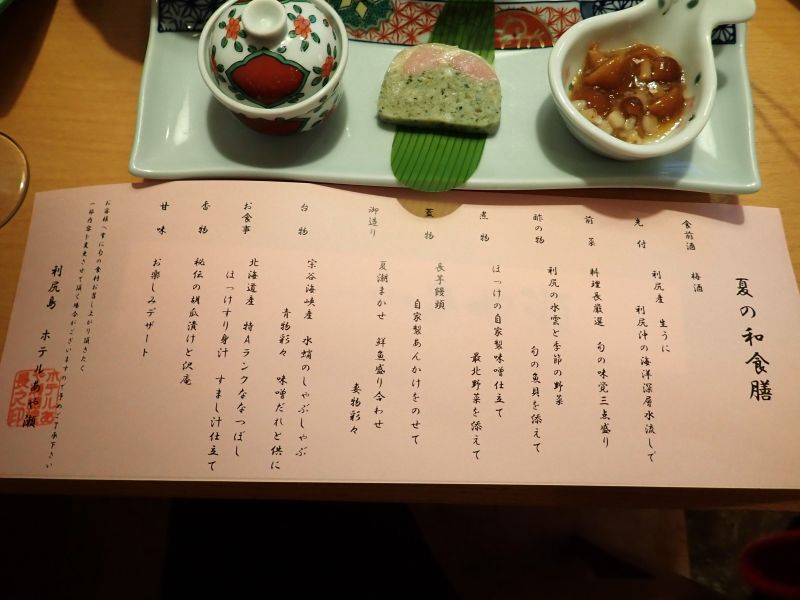 夏の和食膳
食前酒 梅酒
先付 利尻産 生うに
利尻沖の海洋深層水流しで
前菜 料理長厳選 旬の味覚三点盛り
酢の物 利尻の水雲と季節の野菜
旬の魚貝を添えて
煮物 ほっけの自家製味噌仕立て
最北野菜を添えて
蓋物 長芋饅頭
自家製あんかけをのせて
御造り 夏潮まかせ 鮮魚盛り合わせ
妻物彩々
台物 宗谷海峡産 水蛸のしゃぶしゃぶ
青物彩々 味噌だれと供に
お食事 北海道産 特Aランクななつぼし
ほっけすり身汁 すまし汁仕立て
香物 秘伝の胡瓜漬けと沢庵
甘味 お楽しみデザート
お客様へ常に旬の食材お召し上がり頂きたく
一部内容を変更させて頂く場合がございますので予めご了承下さい
利尻島 ホテルあや瀬